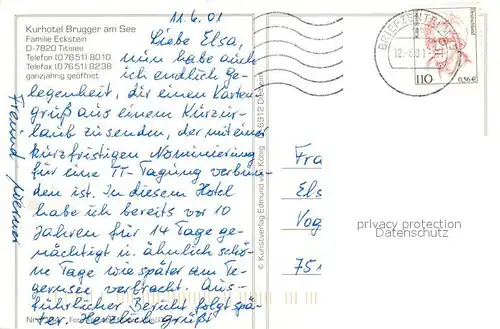 11.6.01
Kurhotel Brugger am See
Familie Eckstein
D-7820 Titisee
Telefon (07651) 8010
Telefax (07651) 8238
ganzjährig geöffnet
Liebe Elsa,
nun habe auch
ich endlich ge-
legenheit, dir einen Karten-
gruß aus einem Kurzur-
laub zu senden, der mit einer
kurzfristigen Nominierung
für eine TT-Tagung verbun-
den ist. In diesem Hotel
habe ich bereits vor 10
Jahren für 14 Tage ge-
nächtigt u. ähnlich schö-
ne Tage wie später am Te-
gernsee verbracht. Aus-
führlicher Bericht folgt spä-
ter. Herzlich grüßt
Freund Werner
© Kunstverlag Edmund von König
BRIEFZENTR
110
0,56€
Deutschland
Fra
Els
Vog
751
privacy protection
Datenschutz